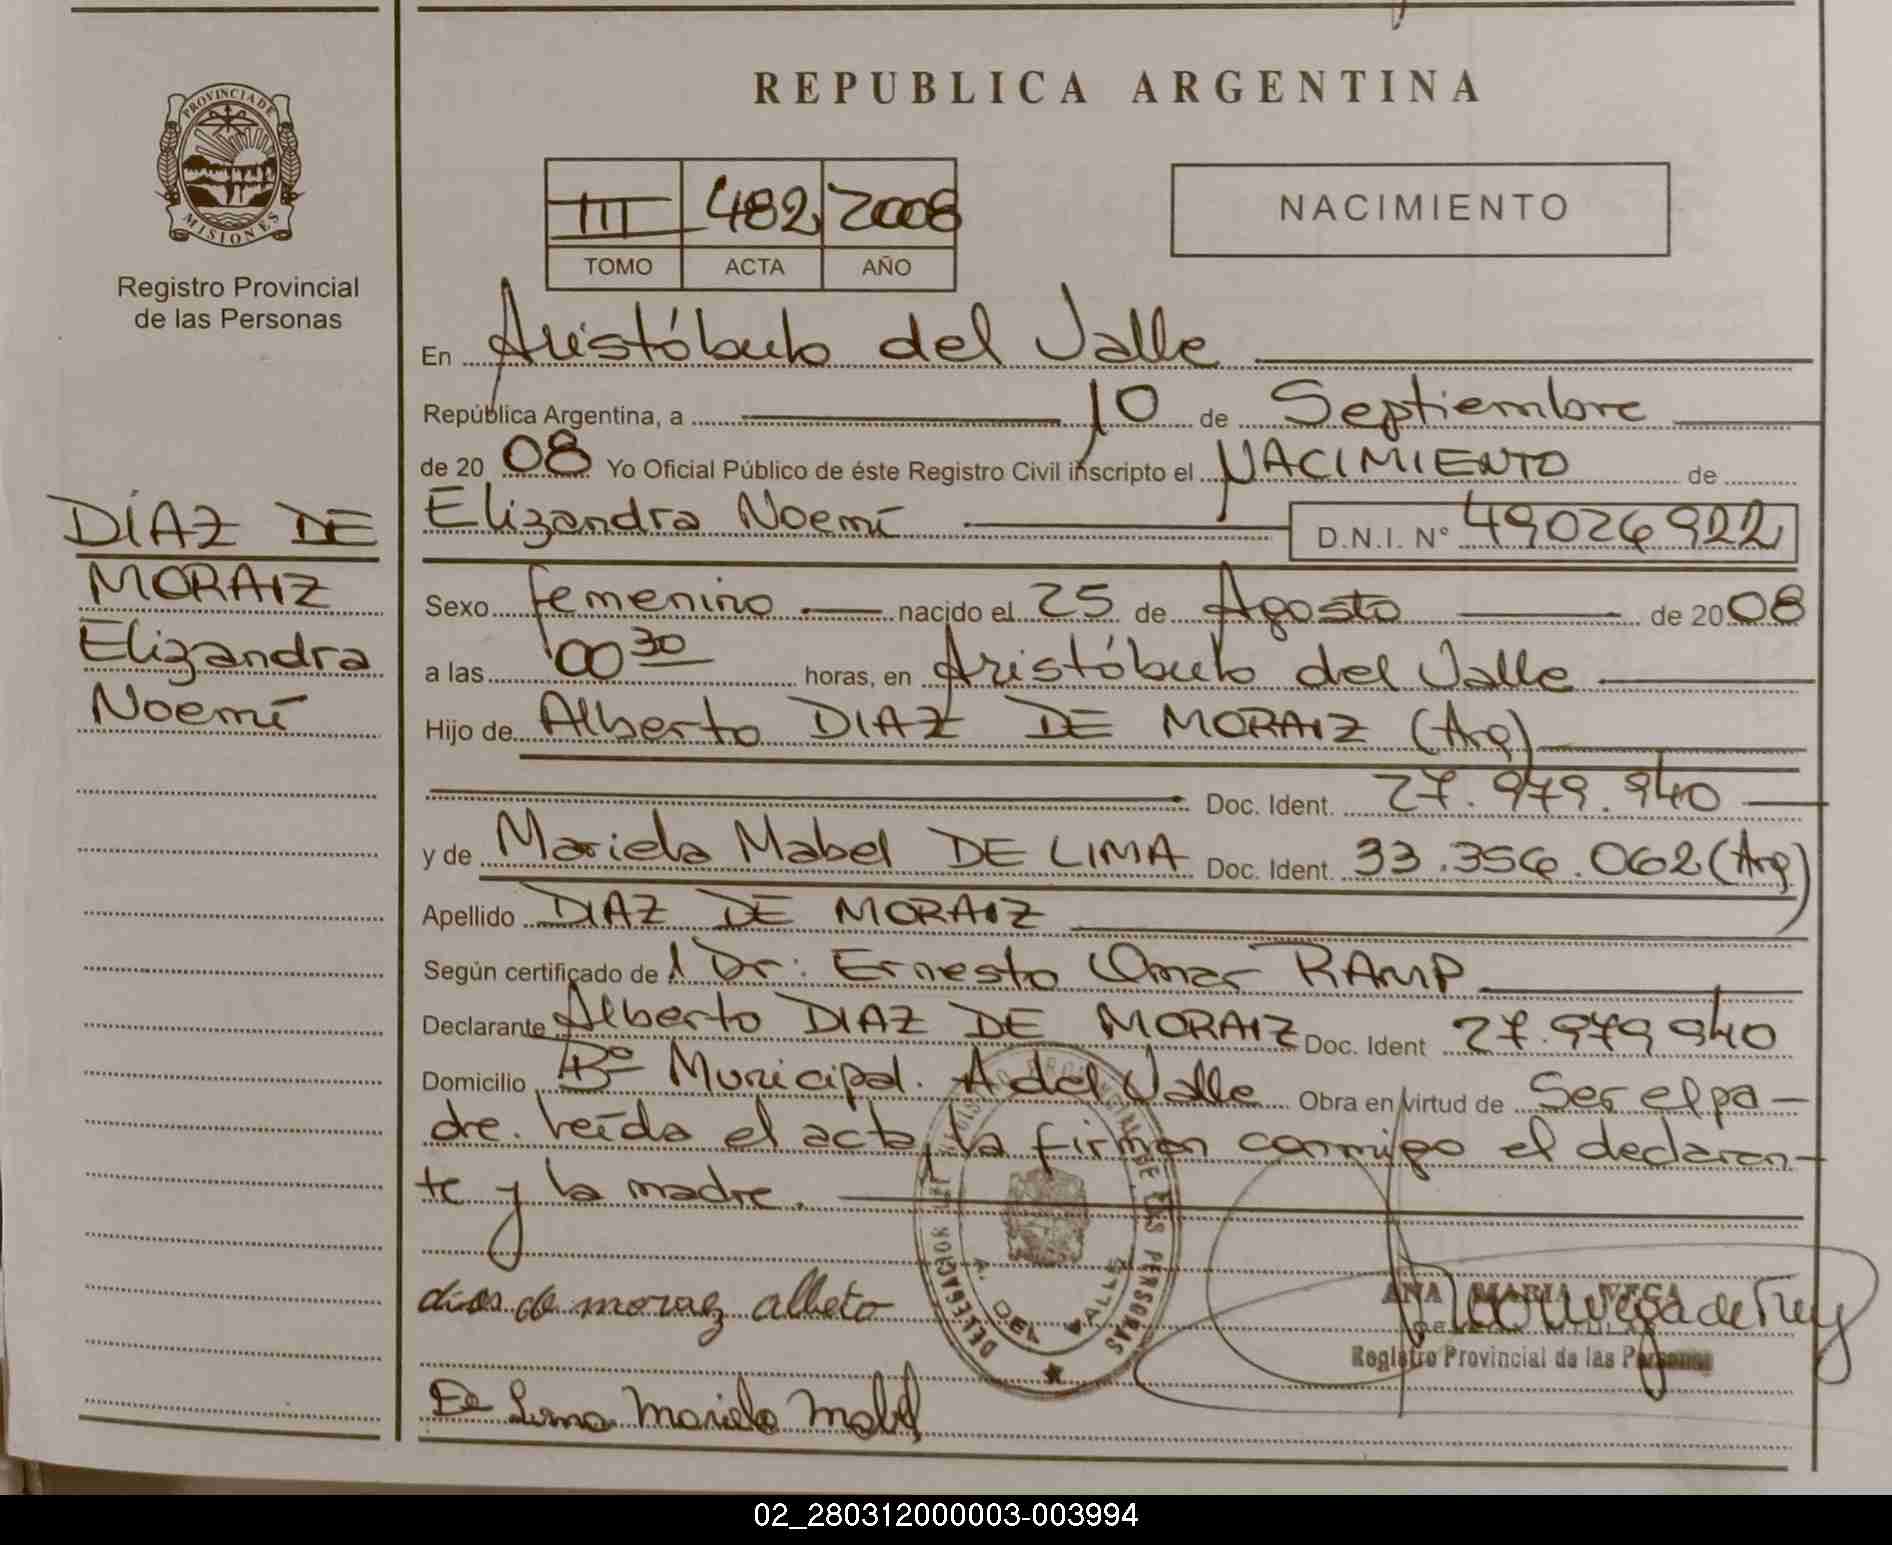 REPUBLICA ARGENTINA
PROVINCIA DE
MISIONES
Registro Provincial
de las Personas
III 482 2008
TOMO ACTA AÑO
NACIMIENTO
En Aristóbulo del Valle
República Argentina, a 10 de Septiembre
de 20 08 Yo Oficial Público de éste Registro Civil inscripto el NACIMIENTO de
Elizandra Noemí D.N.I. Nº 49026922
Sexo femenino nacido el 25 de Agosto de 20 08
a las 00 30 horas, en Aristóbulo del Valle
Hijo de Alberto DIAZ DE MORAIZ (Arg)
Doc. Ident. 27.979.940
y de Mariela Mabel DE LIMA Doc. Ident. 33.356.062 (Arg)
Apellido DIAZ DE MORAIZ
Según certificado de l Dr: Ernesto Omar RAMP
Declarante Alberto DIAZ DE MORAIZ Doc. Ident 27.979 940
Domicilio Bº Municipal. A del Valle Obra en virtud de Ser el pa-
dre. Leída el acta, la firman conmigo el declaran-
te y la madre.
DÍAZ DE
MORAIZ
Elizandra
Noemí
dias de moraez albeto
De Lima Mariela Mabel
DELEGACION DEL REGISTRO PROVINCIAL DE LAS PERSONAS
A. DEL VALLE
ANA MARIA VEGA
Registro Provincial de las Personas
02_280312000003-003994